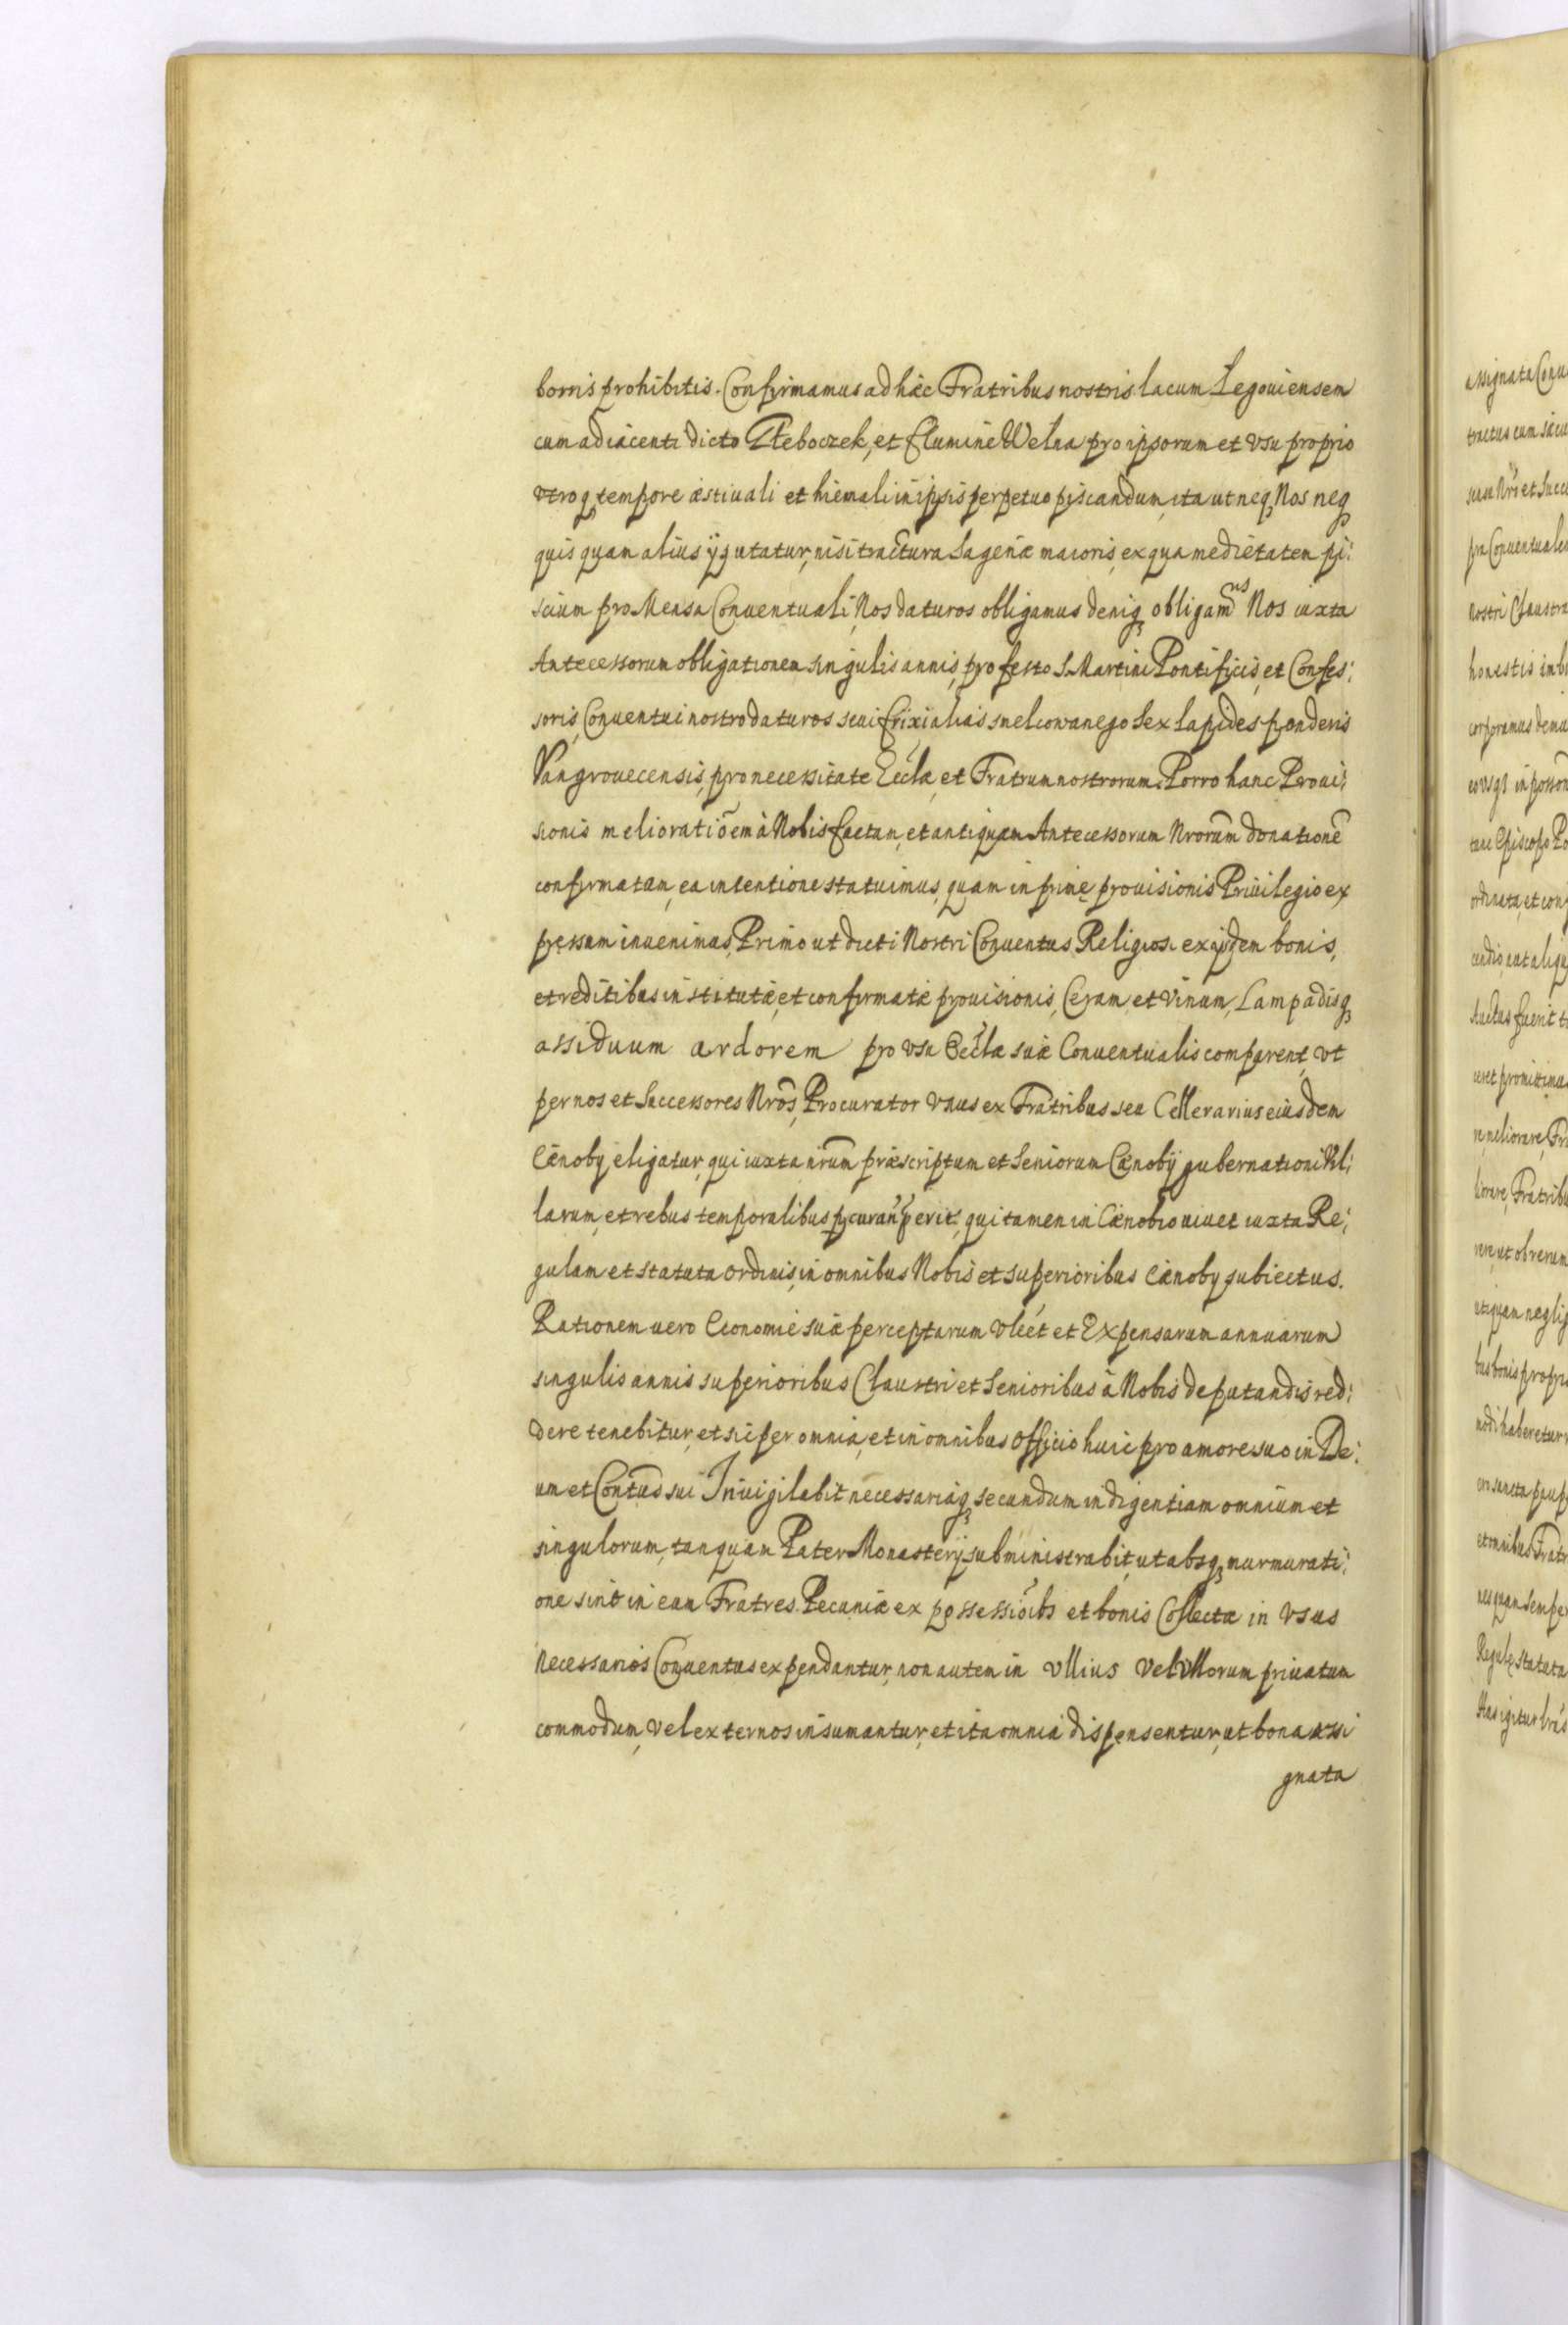 borris prohibitis. Confirmamus ad hæc Fratribus nostris lacum Legouiensem
cum adiacenti dicto Kłeboczek, et flumine Welna pro ipsorum et vsu proprio
vtroq tempore æstiuali et hiemali in ipsis perpetuo piscandum, ita ut neq Nos neq
quis quam alius ijs utatur, nisi tractura Sagenæ maioris, ex qua medietatem pi:
scium pro Mensa Conuentuali, Nos daturos obligamus deniq obligamus Nos iuxta
Antecessorum obligationem singulis annis, pro festo S. Martini Pontificis, et Confes:
soris, Conuentui nostro daturos seui frixi alias smelcowanego Sex Lapides ponderis
Vangrouecensis, pro necessitate Eccłæ, et Fratrum nostrorum. Porro hanc Proui:
sionis melioratiõem à Nobis factam, et antiquam Antecessorum Nrorum donationē
confirmatam, ea intentione statuimus, quam in prime prouisionis Priuilegio ex
pressam inuenimus, Primo ut dicti Nostri Conuentus Religiosi ex ijsdem bonis,
et reditibus institutæ, et confirmatæ prouisionis, Ceram et Vinum, Lampadisq
assiduum ardorem pro vsu Eccłæ suæ Conuentualis comparent, vt
per nos et Successores Nros, Procurator vnus ex Fratribus seu Cellerarius eiusdem
Cænoby eligatur, qui iuxta nrum præscriptum et Seniorum Cænobij gubernationi Vil:
larum, et rebus temporalibus pcuran perit, qui tamen in Cænobio uiuet iuxta Re:
gulam et statuta Ordinis, in omnibus Nobis et superioribus Cænoby subiectus.
Rationem uero Economiæ suæ perceptarum vłcet et Expensarum annuarum
singulis annis superioribus Claustri et Senioribus à Nobis deputandis red:
dere tenebitur, et sic per omnia, et in omnibus Officio huic pro amore suo in De:
um et Contus sui Inuigilabit necessariaq secundum indigentiam omnium et
singulorum, tanquam Pater Monasterij subministrabit, ut absq murmurati:
one sint in eum Fratres. Pecuniæ ex possessiōibs et bonis Collectæ in vsus
Necessarios Conuentus expendantur, non autem in vllius Vel Vllorum priuatum
commodum, vel externos insumantur, et ita omnia dispensentur, ut bona assi
gnata